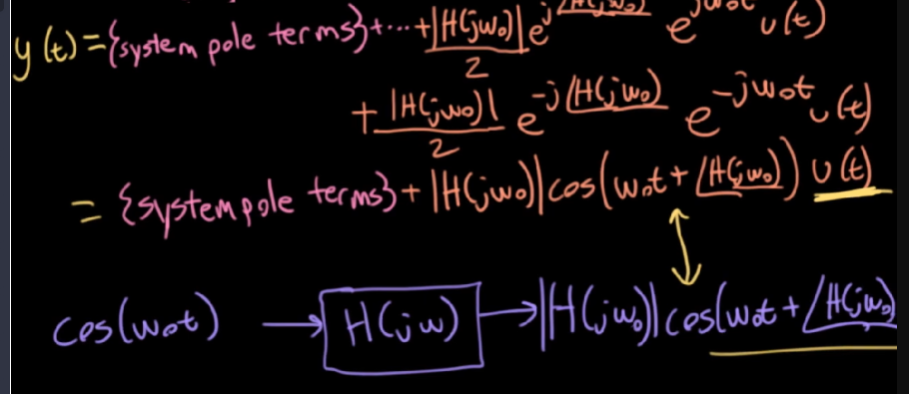 y(t)={system pole terms}+...+|H(jw₀)|/2 e^j∠H(jw₀) e^jw₀t u(t)
+|H(jw₀)|/2 e^-j∠H(jw₀) e^-jw₀t u(t)
= {system pole terms}+|H(jw₀)|cos(w₀t+∠H(jw₀)) u(t)
cos(w₀t) → H(jw) → |H(jw₀)|cos(w₀t+∠H(jw₀)